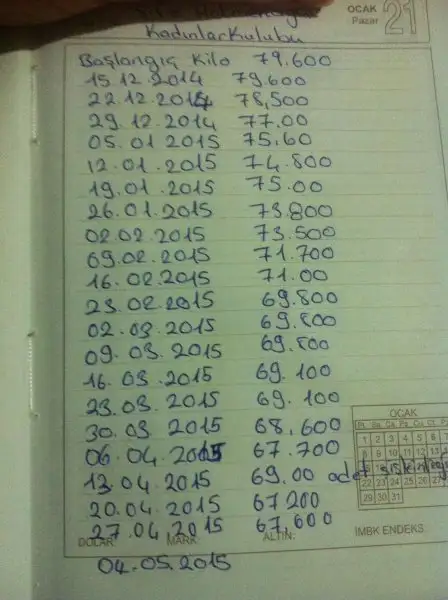 OCAK
Pazar
21
KadınlarKulubu
Başlangıç Kilo 79.600
15.12.2014 79.600
22.12.2014 78,500
29.12.2014 77.00
05.01.2015 75.60
12.01.2015 74.800
19.01.2015 75.00
26.01.2015 73.800
02.02.2015 73.500
09.02.2015 71.700
16.02.2015 71.00
23.02.2015 69.800
02.03.2015 69.800
09.03.2015 69.800
16.03.2015 69.100
23.03.2015 69.100
30.03.2015 68,600
06.04.2015 67.700
13.04.2015 69.00 adet şişkinliği
20.04.2015 67200
27.04.2015 67,600
DOLAR: MARK: ALTIN: İMBK ENDEKS:
04.05.2015
OCAK
1 2 3 4 5 6
8 9 10 11 12 13
22 23 24 25 26 27
29 30 31